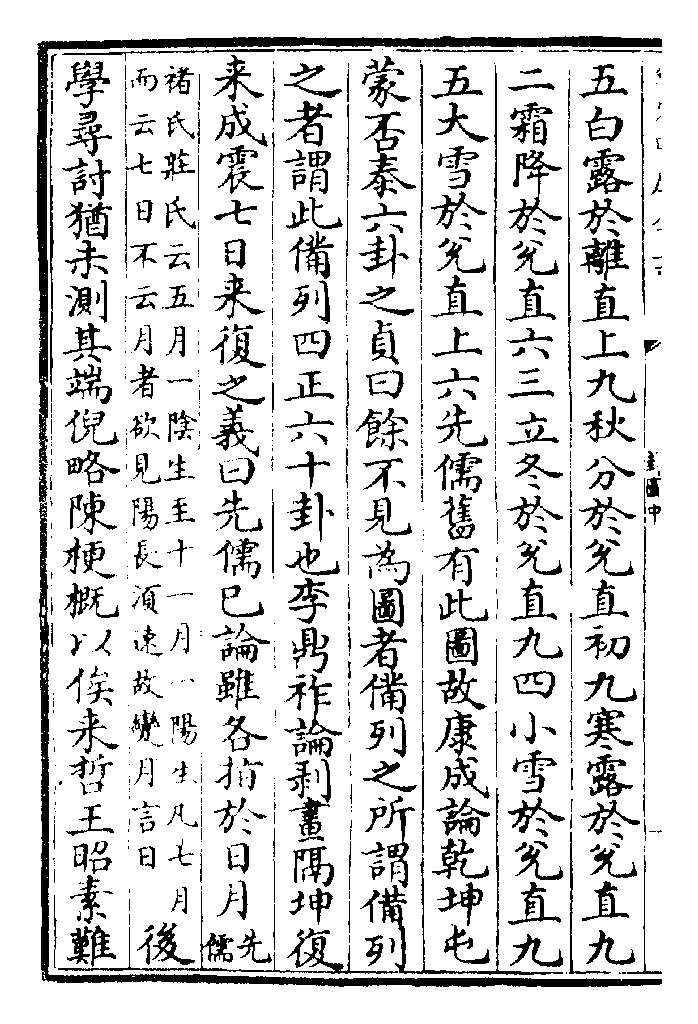 五白露於離直上九秋分於兊直初九寒露於兊直九
二霜降於兊直六三立冬於兊直九四小雪於兊直九
五大雪於兊直上六先儒舊有此圖故康成論乾坤屯
蒙否泰六卦之貞曰餘不見為圖者備列之所謂備列
之者謂此備列四正六十卦也李鼎祚論剥畫隔坤復
来成震七日来復之義曰先儒已論雖各指於日月先儒
褚氏莊氏云五月一陰生至十一月一陽生凡七月
而云七日不云月者欲見陽長湏速故變月言日後
學尋討猶未測其端倪略陳梗概以俟来哲王昭素難